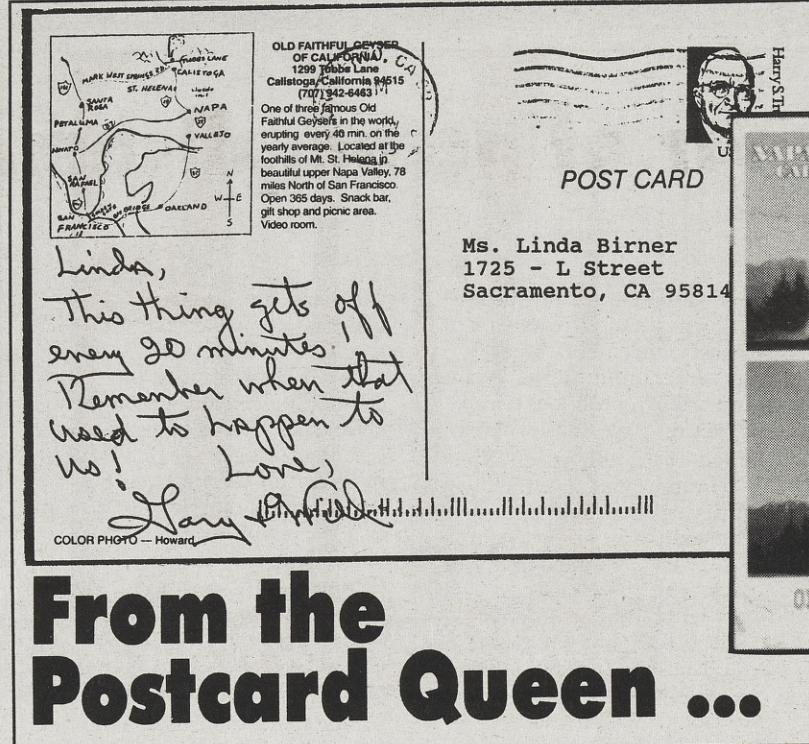 TUBBS LANE
MARK WEST SPRINGS RD
CALISTOGA
ST. HELENA
SANTA
ROSA
NAPA
PETALUMA
VALLEJO
NOVATO
SAN
RAFAEL
N
W E
S
OAKLAND
SAN
FRANCISCO
OLD FAITHFUL GEYSER
OF CALIFORNIA
1299 Tubbs Lane
Calistoga, California 94515
(707) 942-6463
One of three famous Old
Faithful Geysers in the world,
erupting every 40 min. on the
yearly average. Located at the
foothills of Mt. St. Helena in
beautiful upper Napa Valley, 78
miles North of San Francisco.
Open 365 days. Snack bar,
gift shop and picnic area.
Video room.
CA
Harry S. Tr
US
POST CARD
Ms. Linda Birner
1725 - L Street
Sacramento, CA 95814
Linda,
This thing gets off
every 20 minutes!
Remember when that
used to happen to
us!
Love,
Gary &
COLOR PHOTO — Howard
From the
Postcard Queen ...